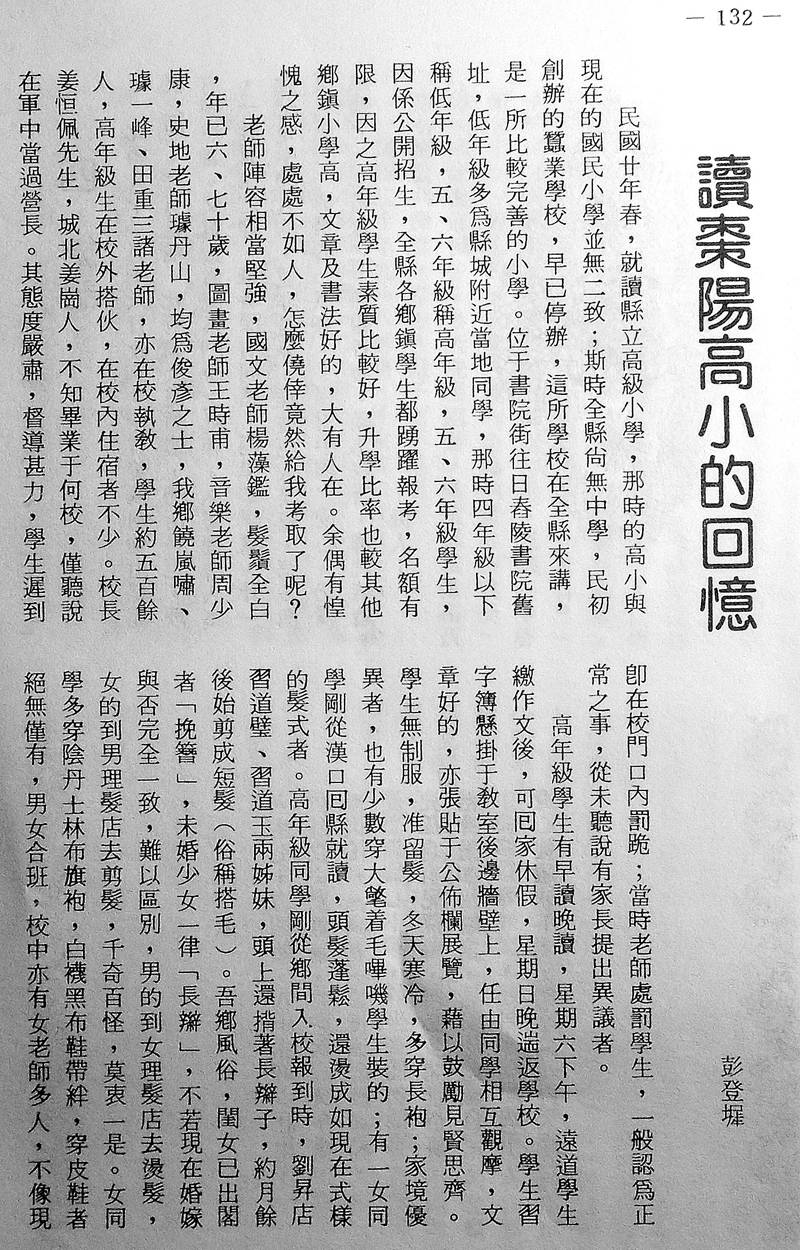 — 132 —
讀棗陽高小的回憶
彭登墀
民國廿年春，就讀縣立高級小學，那時的高小與
現在的國民小學並無二致；斯時全縣尚無中學，民初
創辦的蠶業學校，早已停辦，這所學校在全縣來講，
是一所比較完善的小學。位于書院街往日舂陵書院舊
址，低年級多爲縣城附近當地同學，那時四年級以下
稱低年級，五、六年級稱高年級，五、六年級學生，
因係公開招生，全縣各鄉鎮學生都踴躍報考，名額有
限，因之高年級學生素質比較好，升學比率也較其他
鄉鎮小學高，文章及書法好的，大有人在。余偶有惶
愧之感，處處不如人，怎麼僥倖竟然給我考取了呢？
老師陣容相當堅強，國文老師楊藻鑑，髮鬚全白
，年已六、七十歲，圖畫老師王時甫，音樂老師周少
康，史地老師璩丹山，均爲俊彥之士，我鄉饒嵐嘯、
璩一峰、田重三諸老師，亦在校執教，學生約五百餘
人，高年級生在校外搭伙，在校內住宿者不少。校長
姜恒佩先生，城北姜崗人，不知畢業于何校，僅聽說
在軍中當過營長。其態度嚴肅，督導甚力，學生遲到
卽在校門口內罰跪；當時老師處罰學生，一般認爲正
常之事，從未聽說有家長提出異議者。
高年級學生有早讀晚讀，星期六下午，遠道學生
繳作文後，可回家休假，星期日晚遄返學校。學生習
字簿懸掛于教室後邊牆壁上，任由同學相互觀摩，文
章好的，亦張貼于公佈欄展覽，藉以鼓勵見賢思齊。
學生無制服，准留髮，冬天寒冷，多穿長袍；家境優
異者，也有少數穿大氅着毛嗶嘰學生裝的；有一女同
學剛從漢口回縣就讀，頭髮蓬鬆，還燙成如現在式樣
的髮式者。高年級同學剛從鄉間入校報到時，劉昇店
習道璧、習道玉兩姊妹，頭上還揹著長辮子，約月餘
後始剪成短髮（俗稱搭毛）。吾鄉風俗，閨女已出閣
者「挽簪」，未婚少女一律「長辮」，不若現在婚嫁
與否完全一致，難以區別，男的到女理髮店去燙髮，
女的到男理髮店去剪髮，千奇百怪，莫衷一是。女同
學多穿陰丹士林布旗袍，白襪黑布鞋帶絆，穿皮鞋者
絕無僅有，男女合班，校中亦有女老師多人，不像現